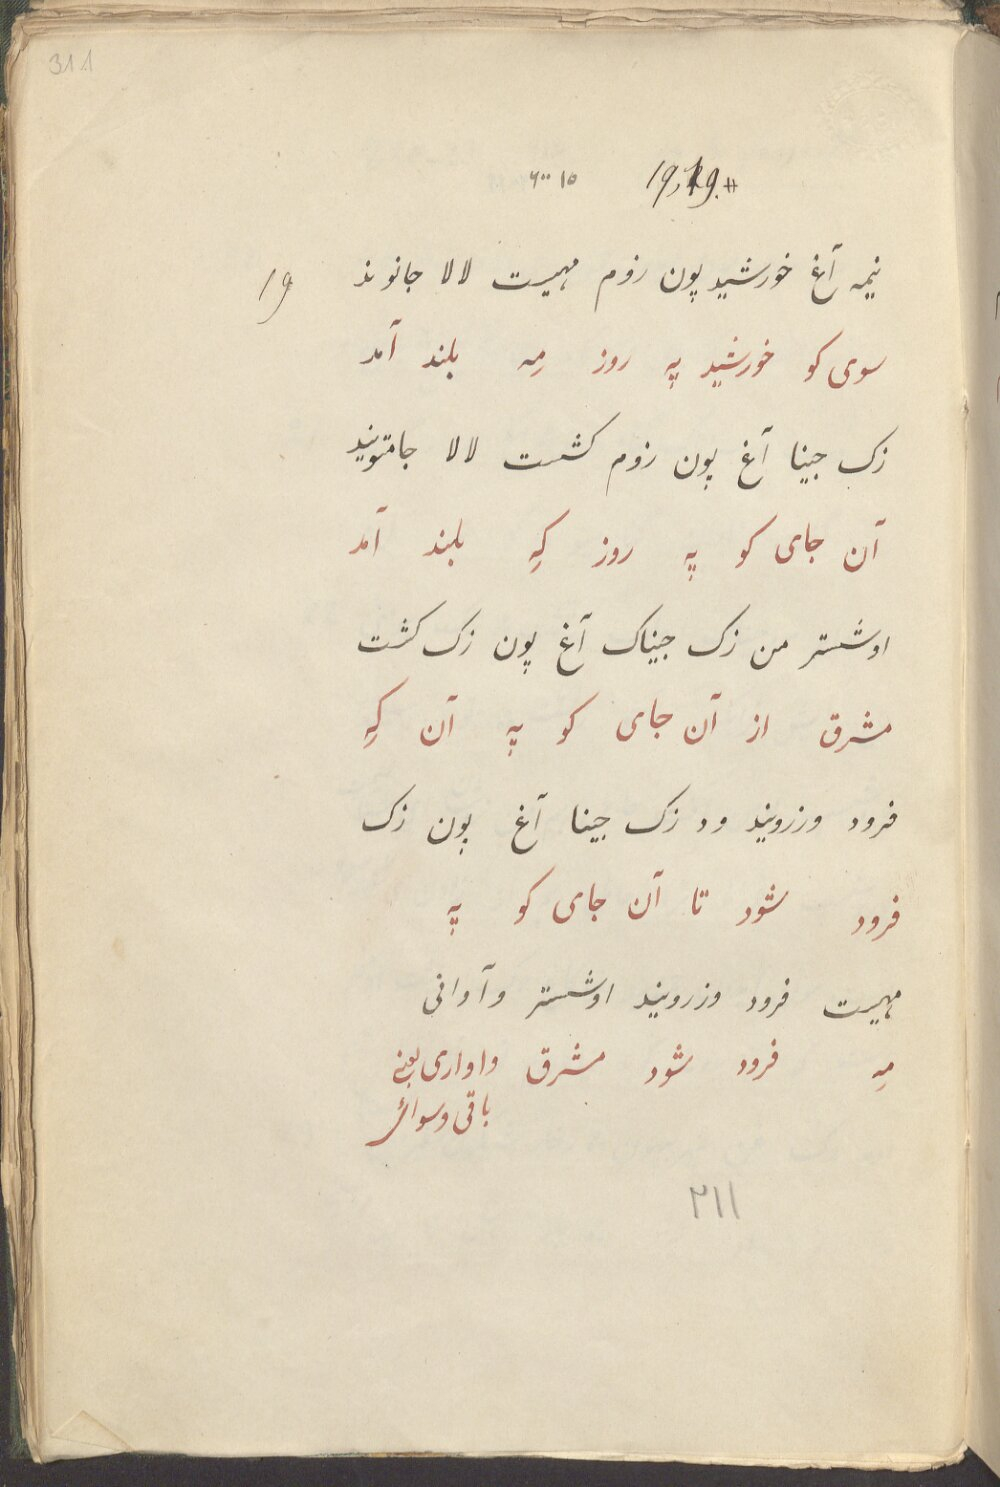 311
19, 19.
نیمه آغ خورشید پون رزم مهیست لالا جانوند
19
سوی کو خورشید په روز مه بلند آمد
زک جینا آغ پون رزم کشست لالا جامتویند
آن جای کو په روز که بلند آمد
اوشستر من زک جیناک آغ پون زک کشت
مشرق از آن جای کو په آن که
فرود وزرویند ود زک جینا آغ پون زک
فرود شود تا آن جای کو په
مهیست فرود وزرویند اوشستر وآوانی
مه فرود شود مشرق واواری یعنے
باقی وسوائر
۲۱۱